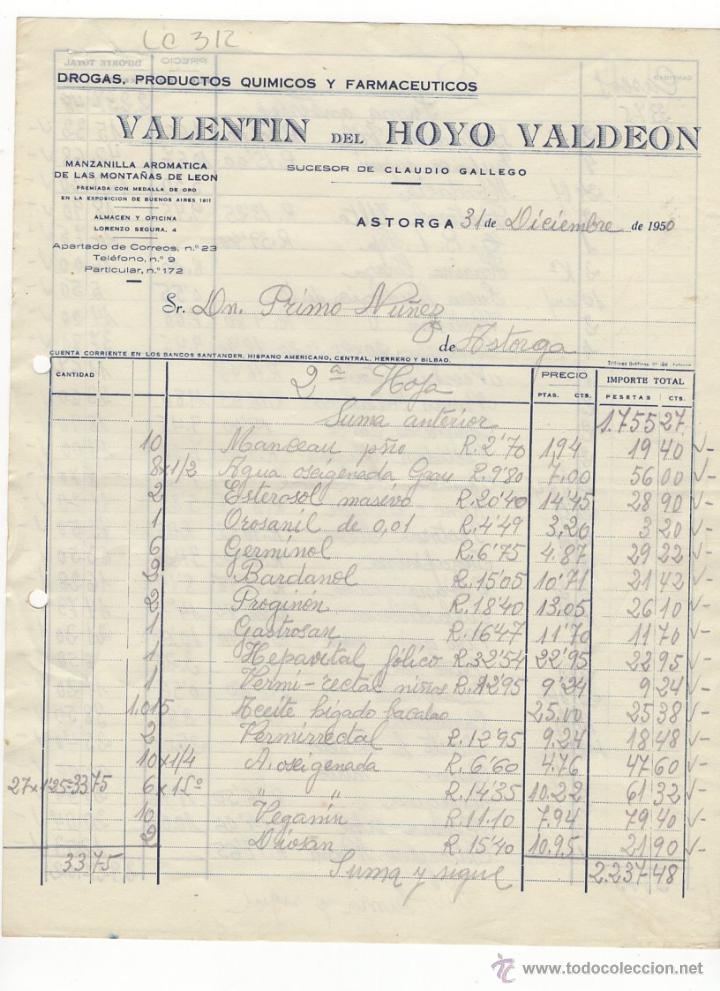 LC 312
DROGAS, PRODUCTOS QUIMICOS Y FARMACEUTICOS
VALENTIN DEL HOYO VALDEON
SUCESOR DE CLAUDIO GALLEGO
MANZANILLA AROMATICA
DE LAS MONTAÑAS DE LEON
PREMIADA CON MEDALLA DE ORO
EN LA EXPOSICION DE BUENOS AIRES 1911
ALMACEN Y OFICINA
LORENZO SEGURA, 4
Apartado de Correos, n.º 23
Teléfono, n.º 9
Particular, n.º 172
ASTORGA 31 de Diciembre de 1950
Sr. Dn. Primo Nuñez
de Astorga
CUENTA CORRIENTE EN LOS BANCOS SANTANDER, HISPANO AMERICANO, CENTRAL, HERRERO Y BILBAO.
CANTIDAD PRECIO IMPORTE TOTAL
PTAS. CTS. PESETAS CTS.
2ª Hoja
Suma anterior 1.755 27
10 Manceau pño R. 2'70 1,94 19 40
8 x 1/2 Agua oxigenada Grau R. 9'80 7,00 56 00
2 Esterosol masivo R. 20'40 14'45 28 90
1 Orosanil de 0,01 R. 4'49 3,20 3 20
6 Germinol R. 6'75 4.87 29 22
2 Bardanol R. 15'05 10'71 21 42
2 Proginón R. 18'40 13.05 26 10
1 Gastrosan R. 16'47 11'70 11 70
1 Hepavital fólico R. 32'54 22'95 22 95
1 Vermi-rectal niños R. 12'95 9'24 9 24
1.015 Aceite higado bacalao 25.00 25 38
2 Vermirrectal R. 12'95 9.24 18 48
10 x 1/4 A. oxigenada R. 6'60 4.76 47 60
27 x 1'25=33 75 6 x 1Lº " " R. 14'35 10.22 61 32
10 Veganin R. 11.10 7.94 79 40
2 R. 15'40 10.95 21 90
33 75 Suma y sigue 2.237 48
www.todocoleccion.net